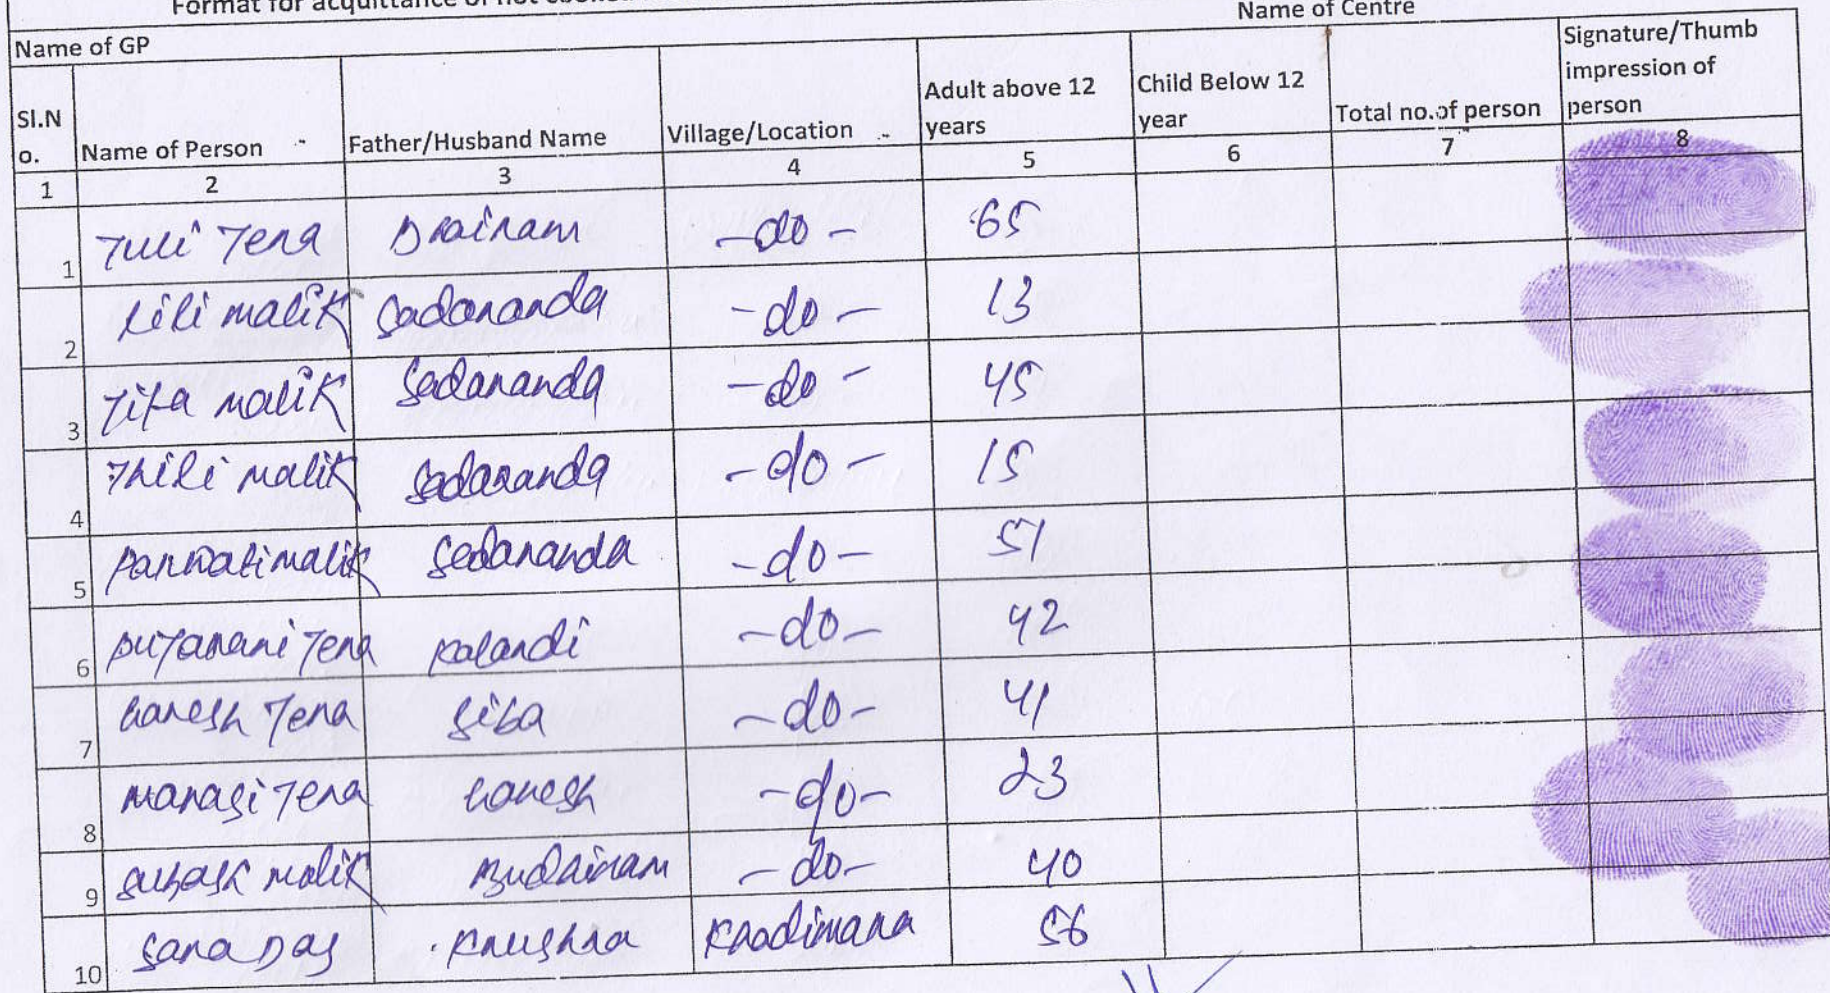 Format for acquittance of hot
Name of GP Name of Centre
Sl.N o. Name of Person Father/Husband Name Village/Location Adult above 12 years Child Below 12 year Total no.of person Signature/Thumb impression of person
1 2 3 4 5 6 7 8
1 Juli Jena -do- 65
2 lili malik Sadananda -do- 13
3 Jita malik Sadananda -do- 45
4 Jhili malik Sadananda -do- 15
5 Parwati malik Sadananda -do- 51
6 Pujarani Jena Kalandi -do- 42
7 Ganesh Jena Siba -do- 41
8 Manasi Jena Ganesh -do- 23
9 Subash malik -do- 40
10 Sana Das Krushna 56